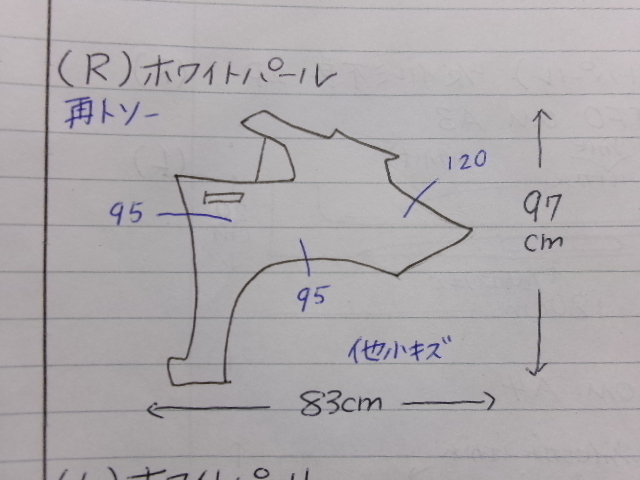 (R)ホワイトパール
再トソー
120
95
97
cm
95
他小キズ
83cm
(L)ホワイトパール